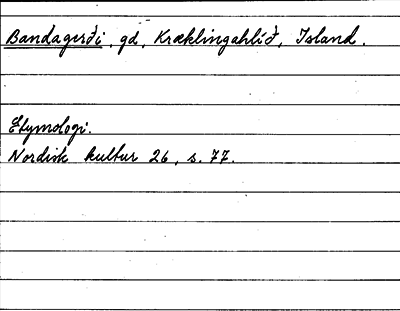 Bandagerði, gd, Kræklingahlíð, Island.
Etymologi.
Nordisk kultur 26, s. 77.